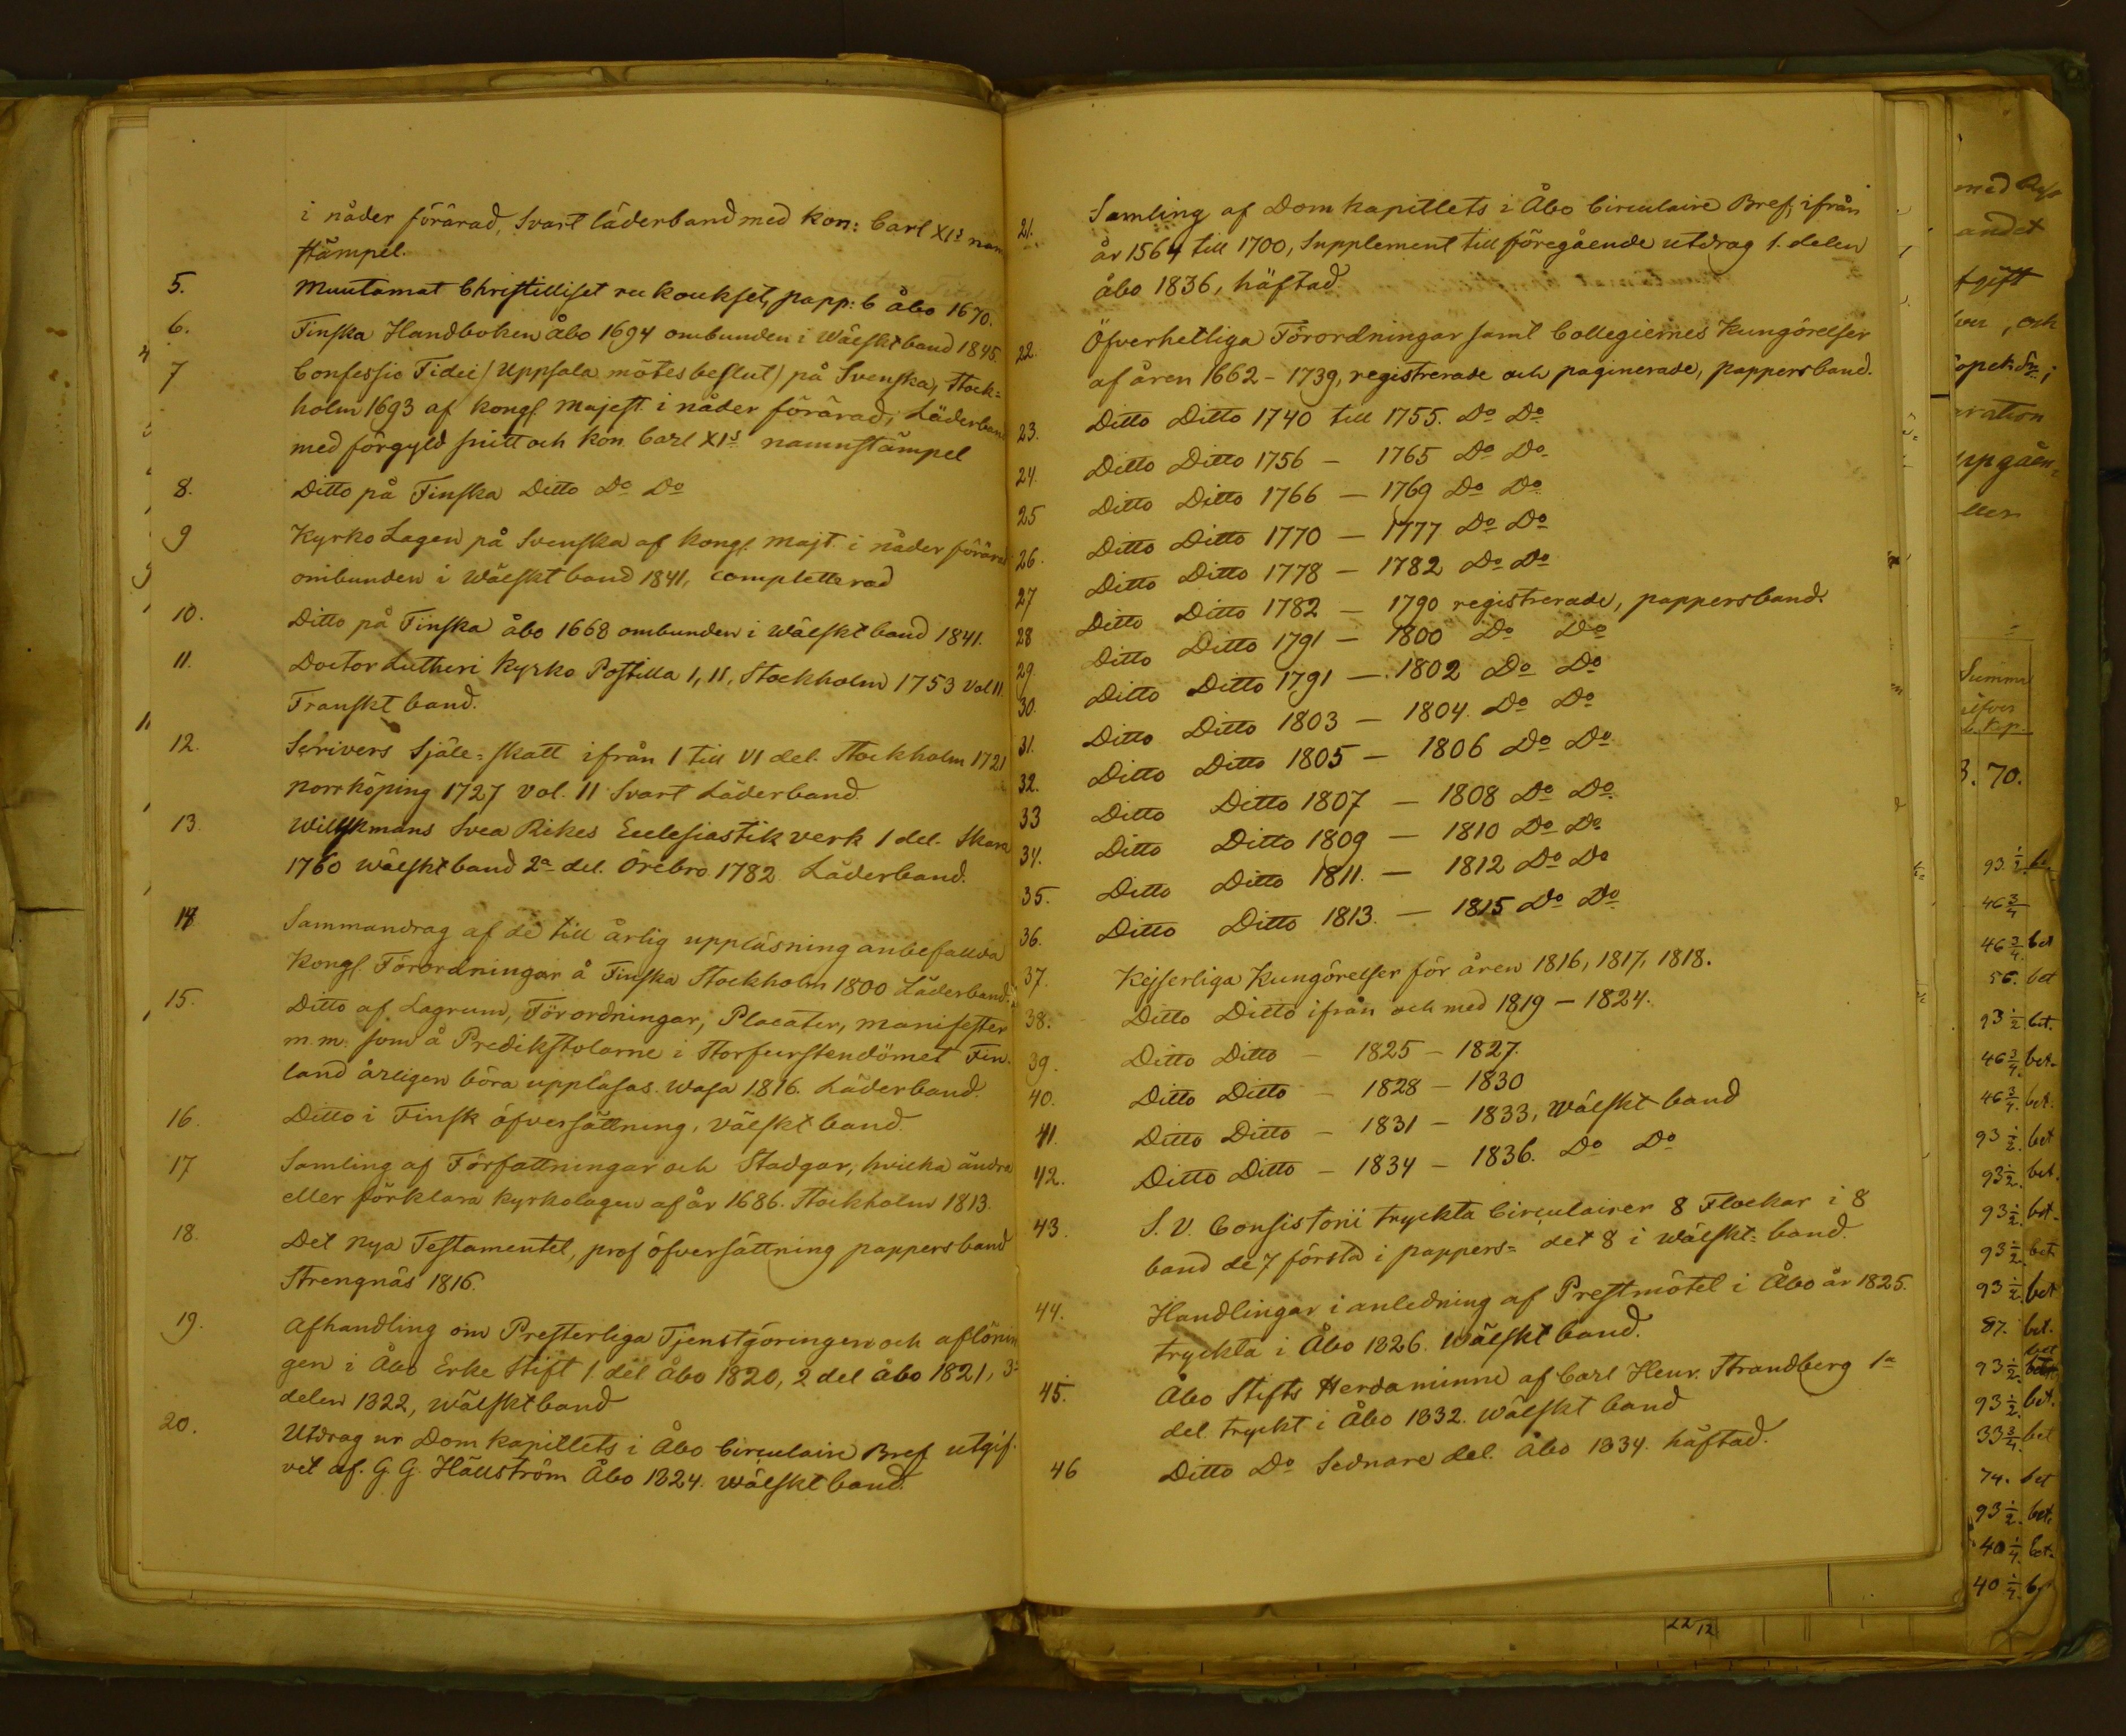 i nåder förärad, Svart läderband med Kon: Carl XI:s nam
stämpel.
5. Muutamat Christilliset ru koukset, papp: b Åbo 1670.
6. Finska Handboken Åbo 1694 ombunden i Wälskt band 1845.
7 Confessio Fidei (Uppsala mötes beslut) på Svenska, Stock=
holm 1693 af Kongl Majest. i nåder förärad, Läderband
med förgyld snitt och Kon. Carl XI:s namnstämpel
8. Ditto på Finska Ditto Do Do
9 Kyrko Lagen på Svenska af Kongl. Majt. i nåder förärad
ombunden i Wälskt band 1841, completterad
10. Ditto på Finska Åbo 1668 ombunden i Wälskt band 1841.
11. Doctor Lutheri Kyrko Postilla I, II, Stockholm 1753 Vol II.
Franskt band.
12. Scrivers Själe=skatt ifrån I till VI del. Stockholm 1721
Norrköping 1727 Vol. II Svart Läderband.
13. Wilskmans Svea Rikes Ecclesiastik verk 1 del. Skara
1760 Wälskt band 2a del. Örebro 1782 Läderband.
14 Sammandrag af de till årlig uppläsning anbefallda
Kongl. Förordningar å Finska Stockholm 1800 Läderband.
15. Ditto af Lagrum, Förordningar, Placater, Manifester
m. m. som å Predikstolarne i Storfurstendömet Fin-
land årligen böra uppläsas. Wasa 1816. Läderband.
16. Ditto i Finsk öfversättning, Välskt band.
17 Samling af Författningar och Stadgar, hvilka ändra
eller förklara Kyrkolagen af år 1686. Stockholm 1813.
18. Det Nya Testamentet, prof öfversättning pappersband
Strengnäs 1816.
19. Afhandling om Presterliga Tjenstgöringen och aflönin
gen i Åbo Erke Stift 1. del Åbo 1820, 2 del Åbo 1821, 3=
delen 1822, Wälskt band
20. Utdrag ur Dom Kapitlets i Åbo Circulaire Bref utgif-
vet af. G. G. Hällström Åbo 1824. Wälskt band.
21. Samling af Dom Kapitlets i Åbo Circulaire Bref, ifrån
år 1564 till 1700, Supplement till föregående utdrag 1. delen
Åbo 1836, häftad
22. Öfverhetliga Förordningar samt Collegiernes Kungörelser
af åren 1662 - 1739, registrerade och paginerade, pappersband.
23. Ditto Ditto 1740 till 1755. Do Do
24. Ditto Ditto 1756 - 1765 Do Do
25 Ditto Ditto 1766 - 1769 Do Do
26. Ditto Ditto 1770 - 1777 Do Do
27 Ditto Ditto 1778 - 1782 Do Do
28 Ditto Ditto 1782 - 1790 registrerade, pappersband.
29. Ditto Ditto 1791 - 1800 Do Do
30. Ditto Ditto 1791 - 1802 Do Do
31. Ditto Ditto 1803 - 1804. Do Do
32. Ditto Ditto 1805 - 1806 Do Do
33 Ditto Ditto 1807 - 1808 Do Do
34. Ditto Ditto 1809 - 1810 Do Do
35. Ditto Ditto 1811. - 1812 Do Do
36. Ditto Ditto 1813. - 1815 Do Do
37. Kejserliga Kungörelser för åren 1816, 1817, 1818.
38. Ditto Ditto ifrån och med 1819 - 1824.
39. Ditto Ditto - 1825 - 1827.
40. Ditto Ditto - 1828 - 1830
41. Ditto Ditto - 1831 - 1833, Wälskt band
42. Ditto Ditto - 1834 - 1836. Do Do
43. S. V. Consistorii tryckta Circulairer 8 Flockar i 8
band de 7 första i pappers= det 8 i Wälskt= band.
44. Handlingar i anledning af Prestmötet i Åbo år 1825.
tryckta i Åbo 1826. Wälskt band.
45. Åbo Stifts Herdaminne af Carl Henr. Strandberg 1a
del. tryckt i Åbo 1832. Wälskt band
46 Ditto Do Sednare del. Åbo 1834. häftad.
med
andet
och
ration
Summa
Kop.
3. 70.
93 1/2
46 3/4
46 3/4 bet
56. bet
93 1/2 bet.
46 3/4 bet.
46 3/4 bet.
93 1/2 bet
93 1/2 bet.
93 1/2 bet.
93 1/2 bet
93 1/2 bet
87. bet.
93 1/2 bet
93 1/2 bet.
33 3/4 bet
74. bet
93 1/2 bet.
40 1/4 bet.
40 1/4
22/12